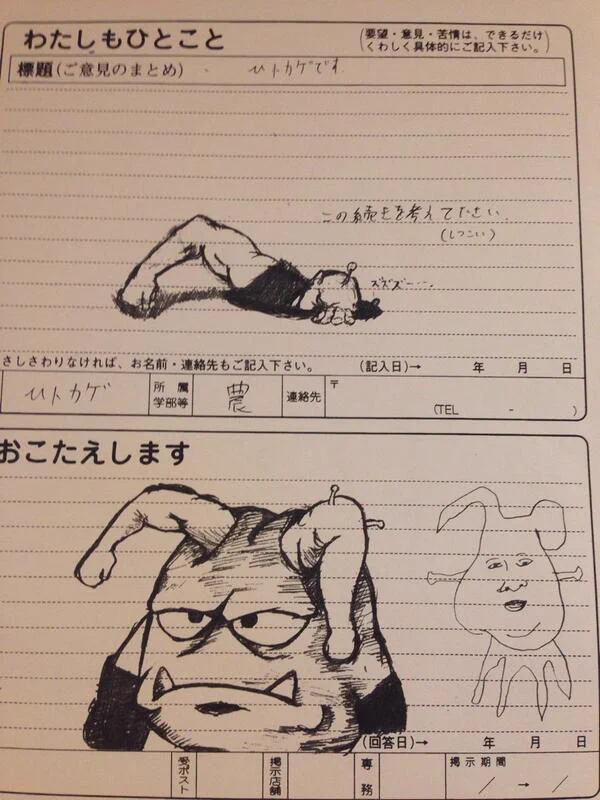 わたしもひとこと
(要望・意見・苦情は、できるだけ
くわしく具体的にご記入下さい。)
標題(ご意見のまとめ) ヒトカゲです
この続きを考えて下さい。
(しつこい)
ズズズー…
さしさわりなければ、お名前・連絡先もご記入下さい。 (記入日)→ 年 月 日
ヒトカゲ 所属 学部等 農 連絡先 〒 (TEL - )
おこたえします
(回答日)→ 年 月 日
受ポスト 掲示店舗 専務 掲示期間 / → /